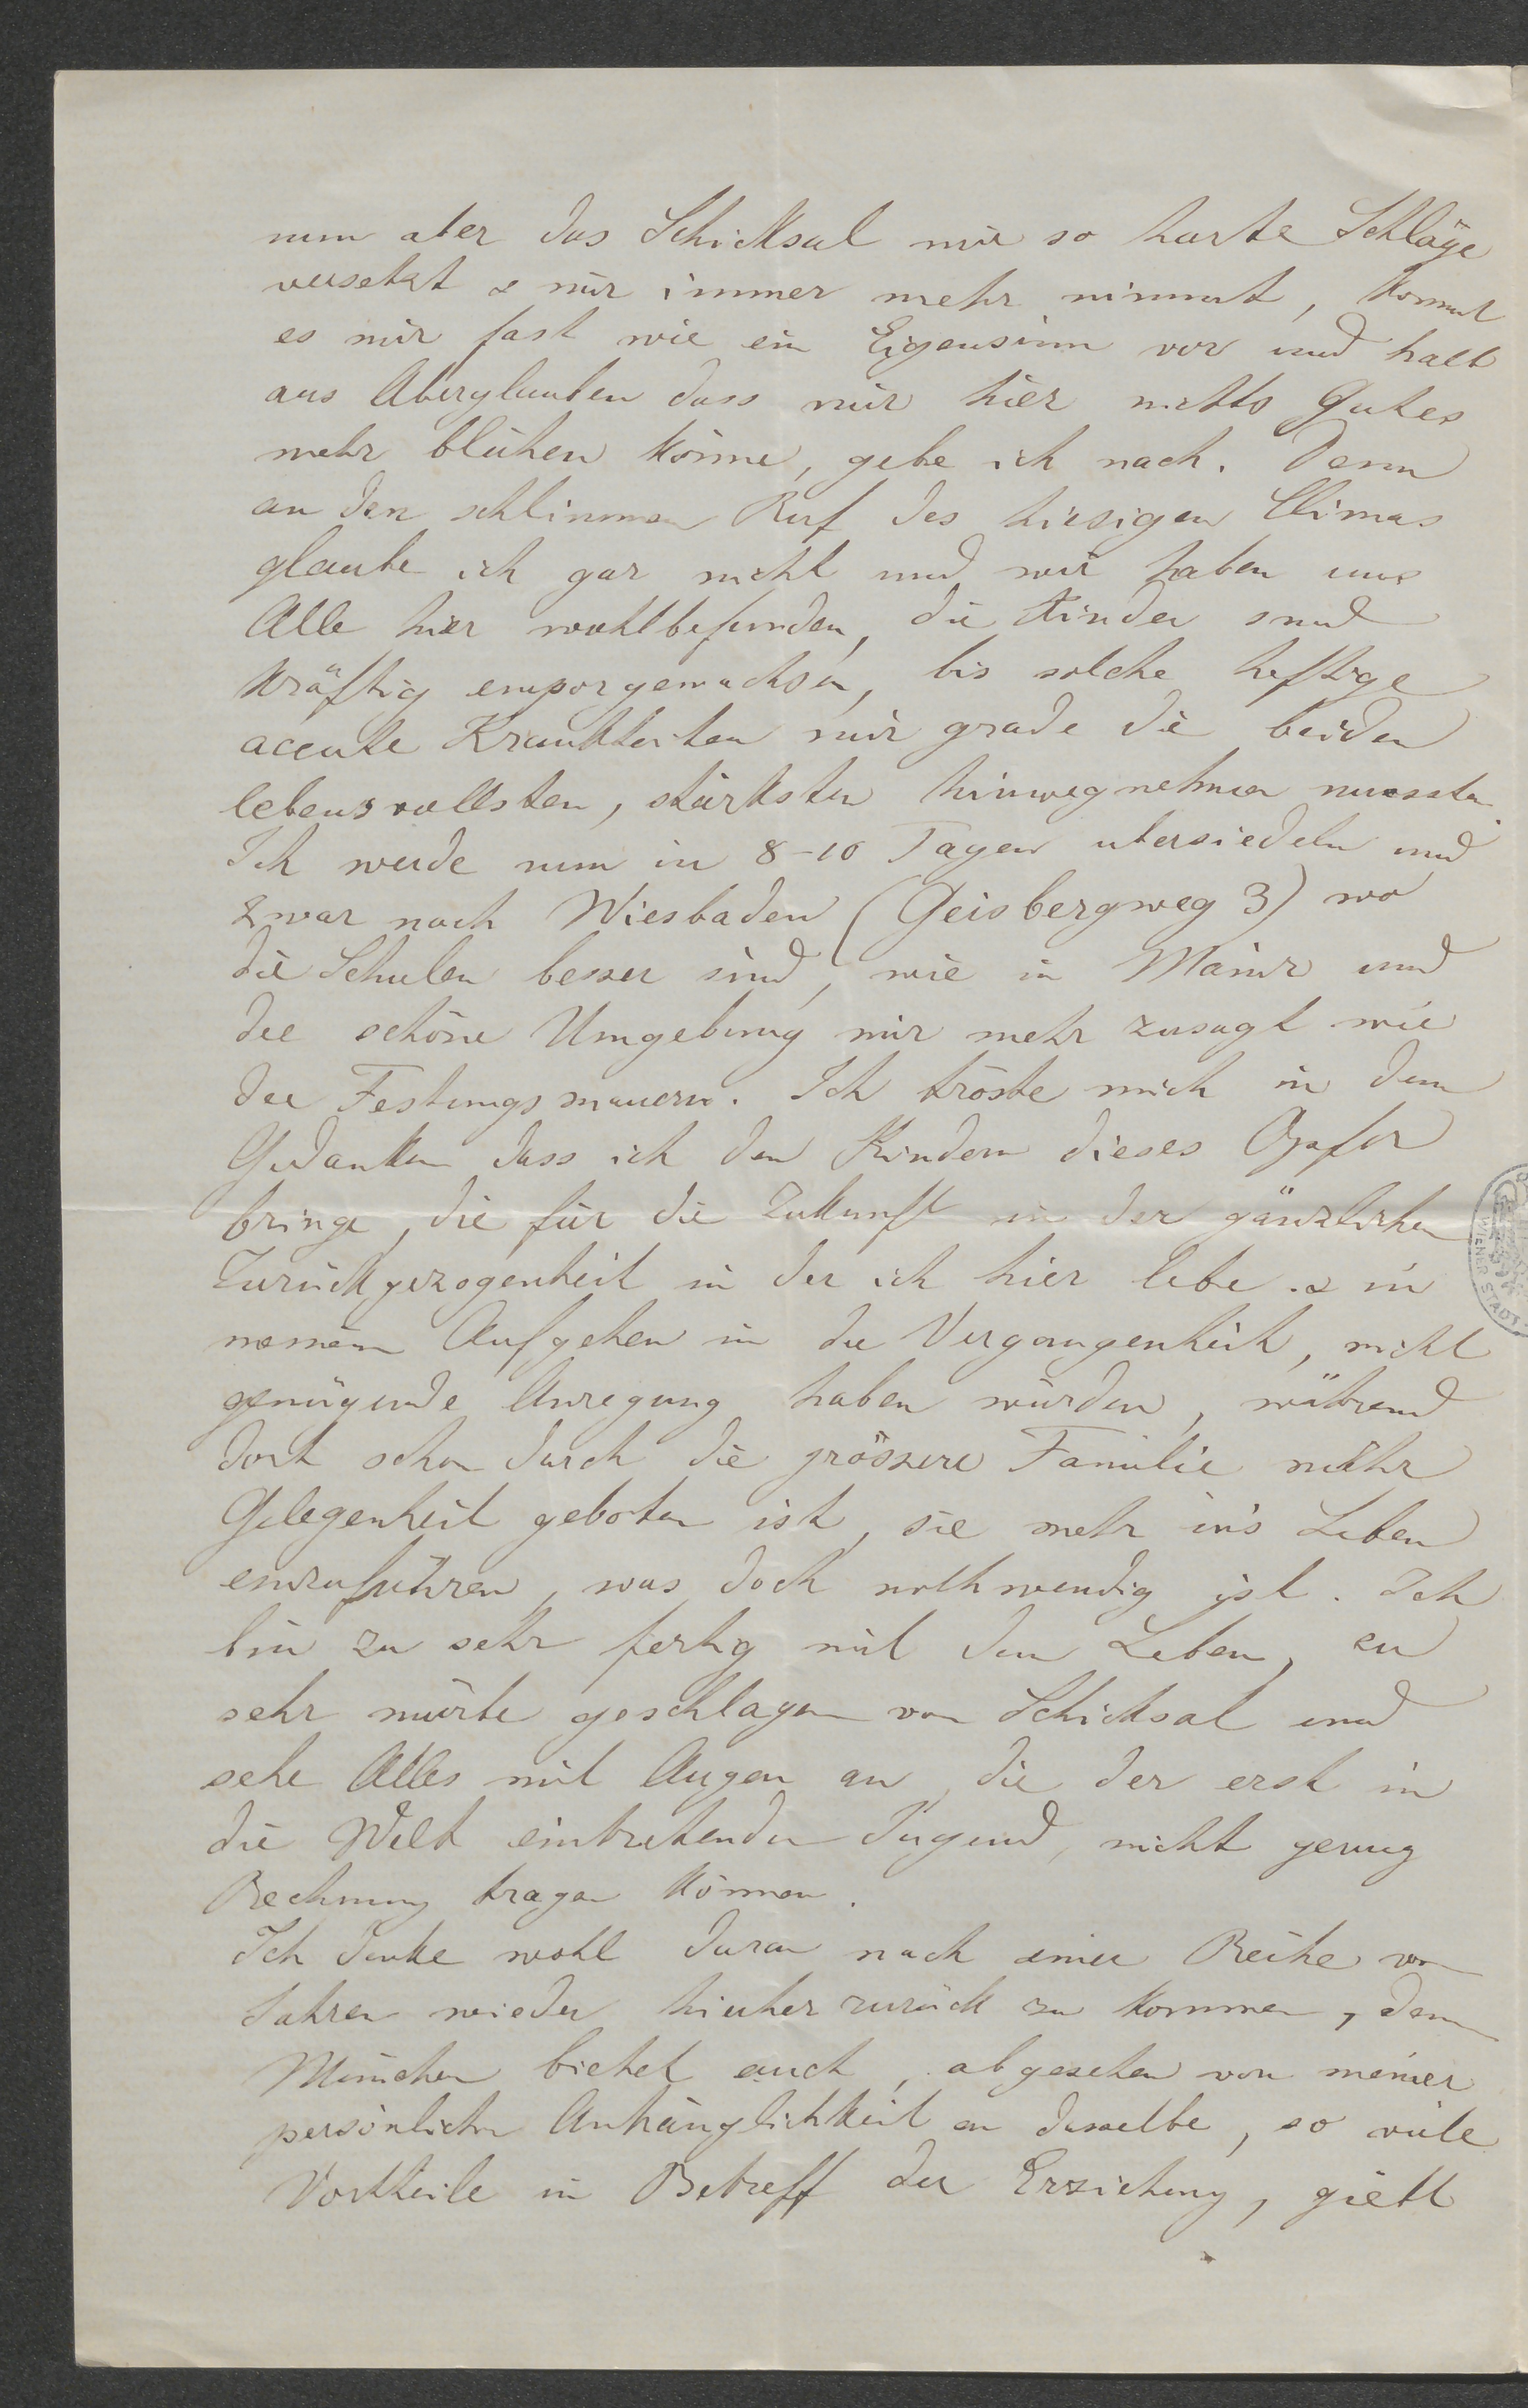 nun aber das Schicksal mir so harte Schläge
versetzt & mir immer mehr nimmt, kommt
es mir fast wie ein Eigensinn vor und halb
aus Aberglauben dass mir hier nichts Gutes
mehr blühen könne, gebe ich nach. Denn
an den schlimmen Ruf des hiesigen Climas
glaube ich gar nicht und wir haben uns
Alle hier wohlbefunden, die Kinder sind
kräftig emporgewachsen, bis solche heftige
aceute Krankheiten mir grade die beiden
lebensvollsten, stärksten hinwegnehmen mussten.
Ich werde nun in 8-10 Tagen übersiedeln und
zwar nach Wiesbaden (Geisbergweg 3) wo
die Schulen besser sind, wie in Mainz und
die schöne Umgebung mir mehr zusagt wie
die Festungsmauern. Ich tröste mich in dem
Gedanken dass ich den Kindern dieses Opfer
bringe, die für die Zukunft in der gänzlichen
Zurückgezogenheit in der ich hier lebe & in
meinem Aufgehen in die Vergangenheit, nicht
genügende Anregung haben würden, während
dort schon durch die grössere Familie mehr
Gelegenheit geboten ist, sie mehr in's Leben
einzuführen, was doch nothwendig ist. Ich
bin zu sehr fertig mit dem Leben, zu
sehr mürbe geschlagen vom Schicksal und
sehe Alles mit Augen an, die der erst in
die Welt eintretenden Jugend, nicht genug
Rechnung tragen können.
Ich denke wohl daran nach einer Reihe von
Jahren wieder hieher zurück zu kommen, denn
München bietet auch, abgesehen von meiner
persönlichen Anhänglichkeit an dasselbe, so viele
Vortheile in Betreff der Erziehung, giebt
WIENER STADT